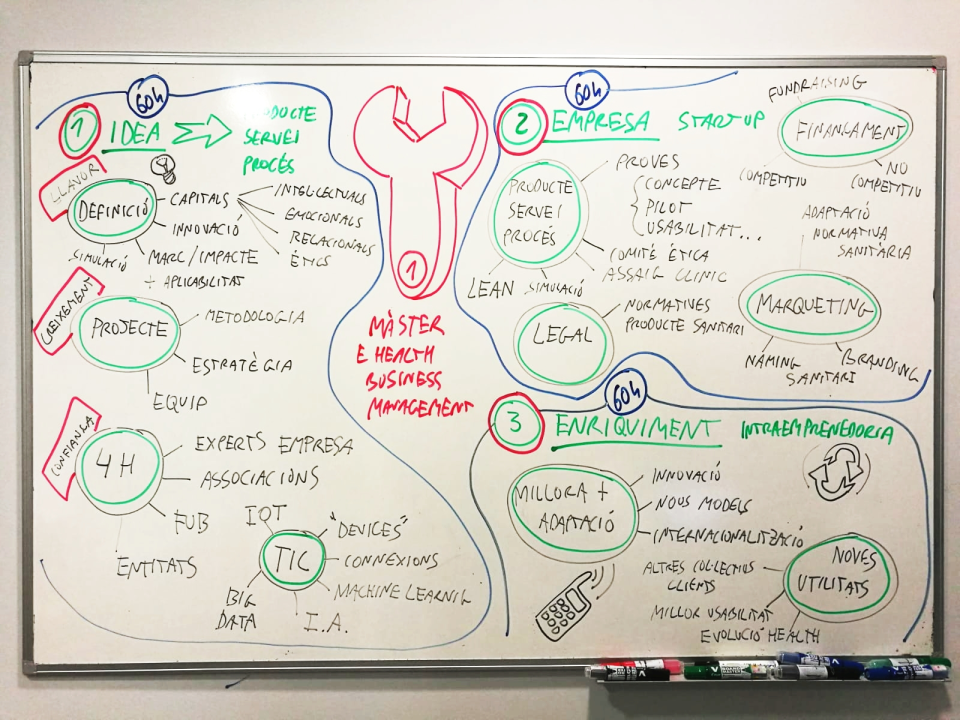 60h
1 IDEA
PRODUCTE
SERVEI
PROCÉS
LLAVOR
DEFINICIÓ
CAPITALS
INTEL·LECTUALS
EMOCIONALS
RELACIONALS
ÈTICS
INNOVACIÓ
MARC/IMPACTE
+ APLICABILITAT
SIMULACIÓ
CREIXEMENT
PROJECTE
METODOLOGIA
ESTRATÈGIA
EQUIP
CONFIANÇA
4H
EXPERTS EMPRESA
ASSOCIACIÓNS
FUB
ENTITATS
TIC
IOT
"DEVICES"
CONNEXIONS
MACHINE LEARNIG
I.A.
BIG
DATA
1
MÀSTER
E HEALTH
BUSINESS
MANAGEMENT
60h
2 EMPRESA STARTUP
PRODUCTE
SERVEI
PROCÉS
PROVES
CONCEPTE
PILOT
USABILITAT...
COMITÉ ÈTICA
ASSAIG CLINIC
SIMULACIÓ
LEAN
LEGAL
NORMATIVES
PRODUCTE SANITARI
FUNDRAISING
FINANÇAMENT
COMPETITIU
NO
COMPETITIU
ADAPTACIÓ
NORMATIVA
SANITÀRIA
MARQUETING
NAMING
SANITARI
BRANDING
60h
3 ENRIQUIMENT INTRAEMPRENEDORIA
MILLORA +
ADAPTACIÓ
INNOVACIÓ
NOUS MODELS
INTERNACIONALITZACIÓ
NOVES
UTILITATS
ALTRES COL·LECTIUS
CLIENTS
MILLOR USABILITAT
EVOLUCIÓ HEALTH